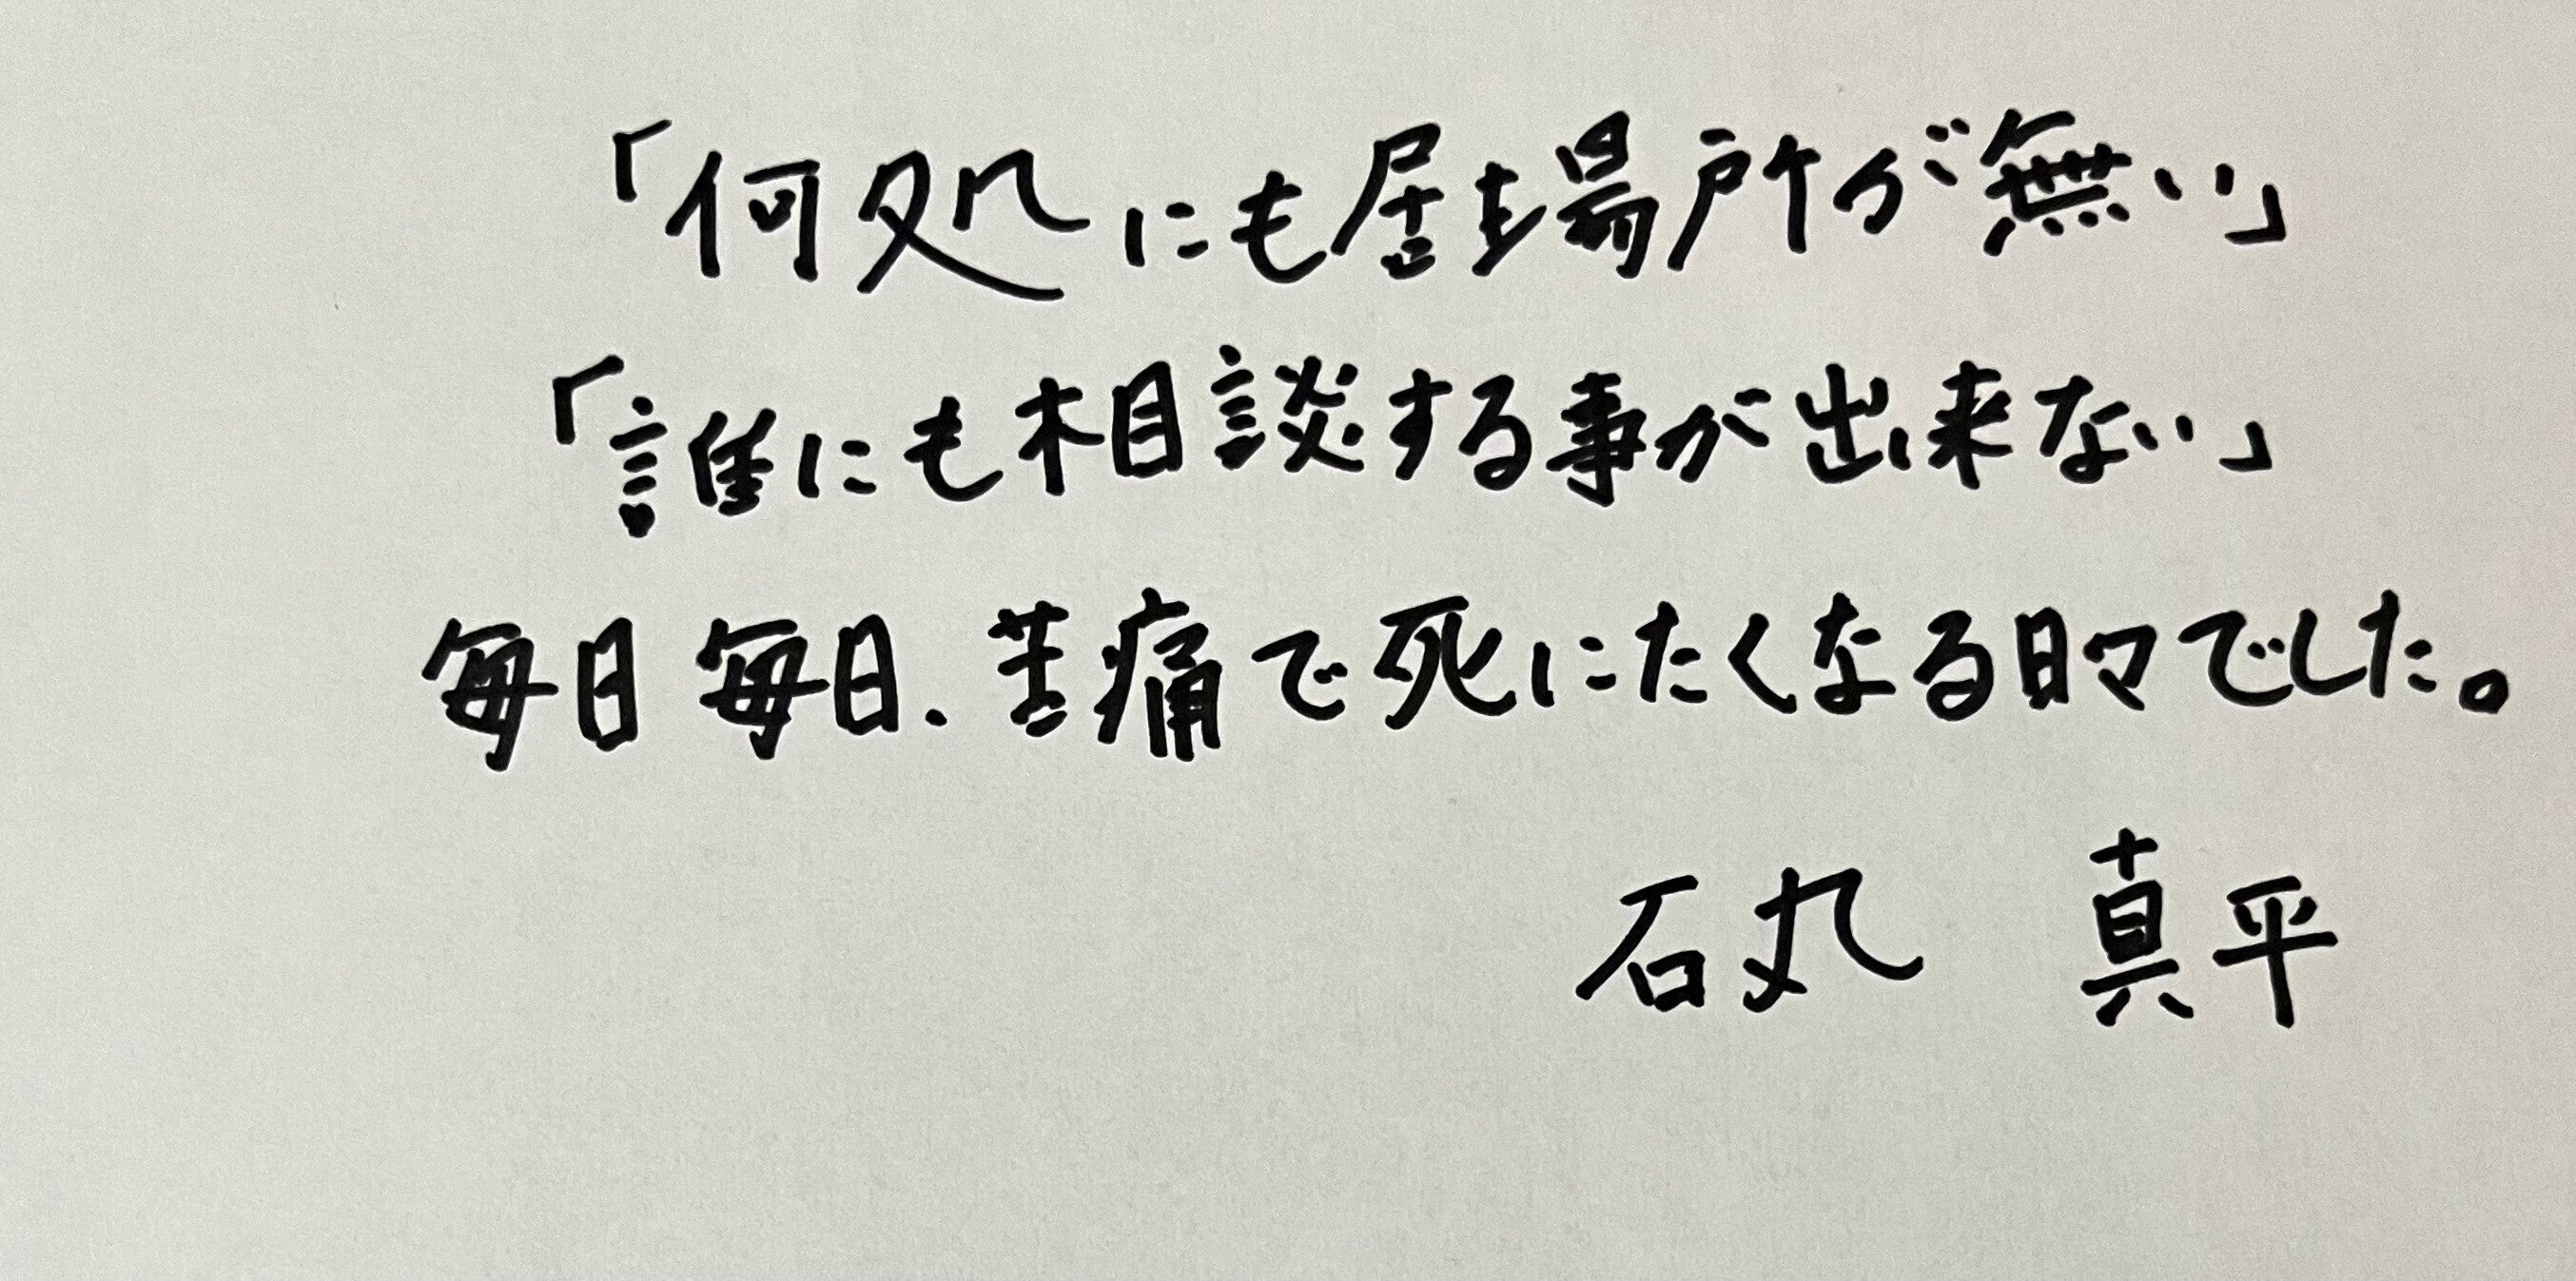 「何処にも居場所が無い」
「誰にも相談する事が出来ない」
毎日毎日、苦痛で死にたくなる日々でした。
石丸　真平